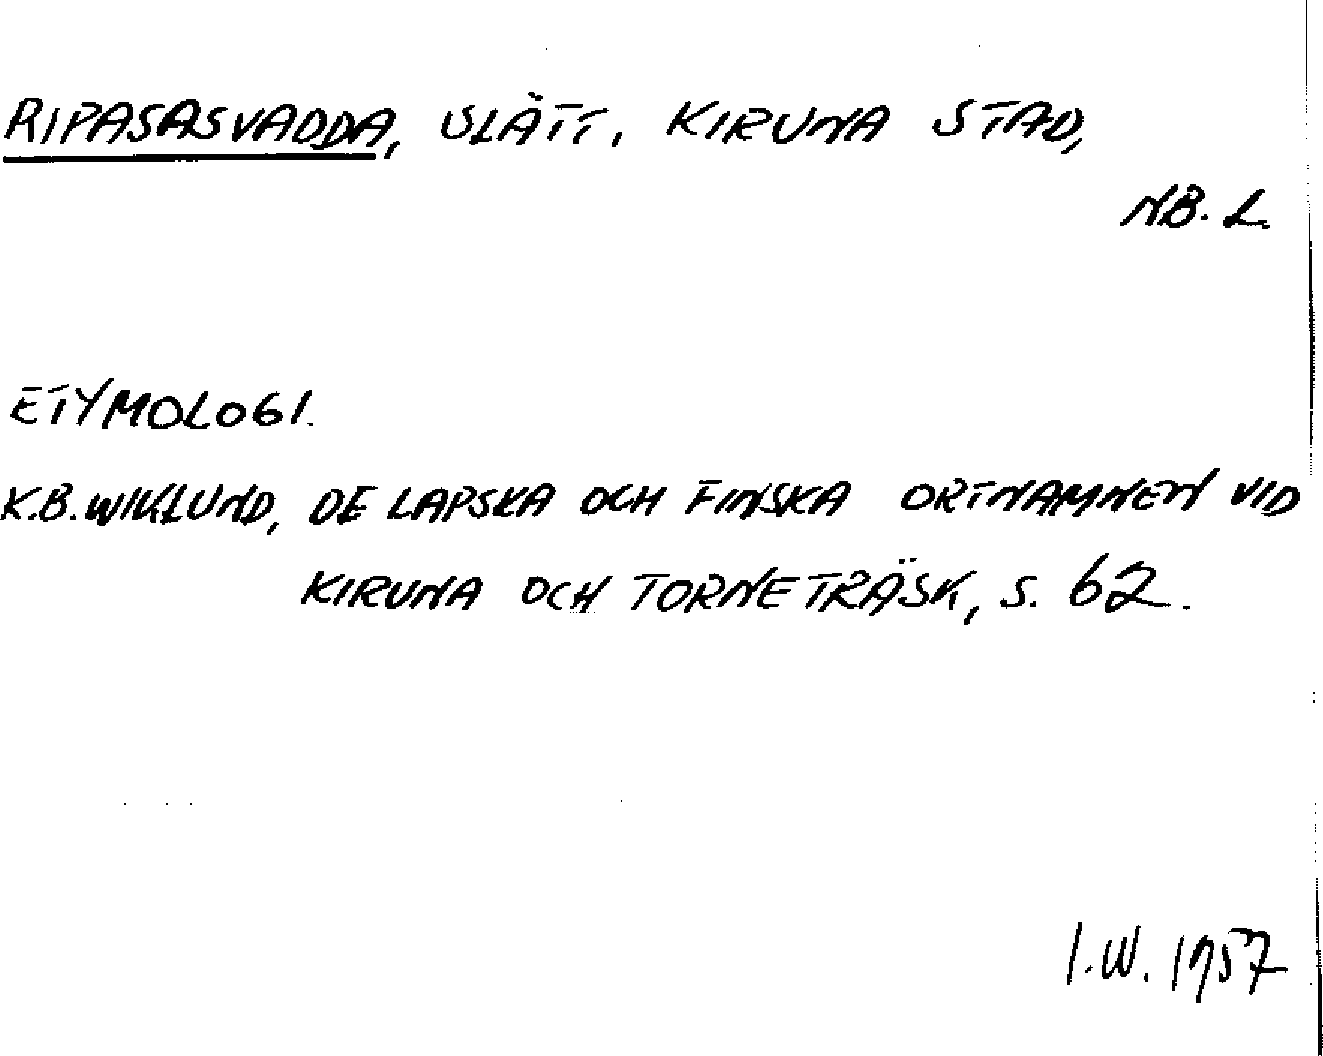 RIPASASVADDA, SLÄTT, KIRUNA STAD,
NB. L.
ETYMOLOGI.
K.B. WIKLUND, DE LAPSKA OCH FINSKA ORTNAMNEN VID
KIRUNA OCH TORNETRÄSK, S. 62.
I.W. 1957